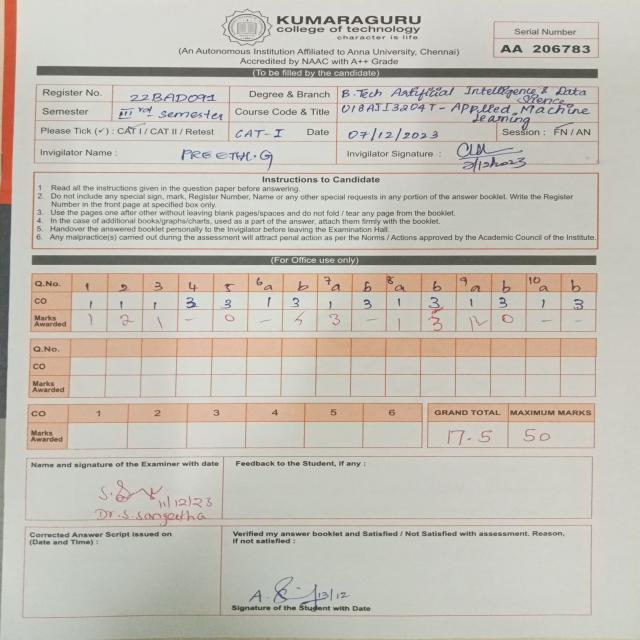 KUMARAGURU
college of technology
character is life
(An Autonomous Institution Affiliated to Anna University, Chennai)
Accredited by NAAC with A++ Grade
Serial Number
AA 206783
(To be filled by the candidate)
Register No. 22BAD091 Degree & Branch B.Tech Artificial Intelligence & Data Science
Semester IIIrd semester Course Code & Title U18AII3204T - Applied Machine Learning
Please Tick (✓) : CAT I / CAT II / Retest CAT-I Date 07/12/2023 Session : FN / AN
Invigilator Name : PREETHI.G Invigilator Signature :
Instructions to Candidate
1 Read all the instructions given in the question paper before answering.
2 Do not include any special sign, mark, Register Number, Name or any other special requests in any portion of the answer booklet. Write the Register
Number in the front page at specified box only.
3 Use the pages one after other without leaving blank pages/spaces and do not fold / tear any page from the booklet.
4 In the case of additional books/graphs/charts, used as a part of the answer, attach them firmly with the booklet.
5 Handover the answered booklet personally to the Invigilator before leaving the Examination Hall.
6 Any malpractice(s) carried out during the assessment will attract penal action as per the Norms / Actions approved by the Academic Council of the Institute.
(For Office use only)
Q.No. 1 2 3 4 5 6a b 7a b 8a b 9a b 10a b
CO 1 1 1 3 3 1 3 1 3 1 3 1 3 1 3
Marks Awarded 1 2 1 - 0 - 3 - 1 0 - -
Q.No.
CO
Marks Awarded
CO 1 2 3 4 5 6 GRAND TOTAL MAXIMUM MARKS
Marks Awarded 17.5 50
Name and signature of the Examiner with date
Feedback to the Student, if any :
11/12/23
Dr.S.Sangeetha
Corrected Answer Script issued on
(Date and Time) :
Verified my answer booklet and Satisfied / Not Satisfied with assessment. Reason,
if not satisfied :
13/12
Signature of the Student with Date